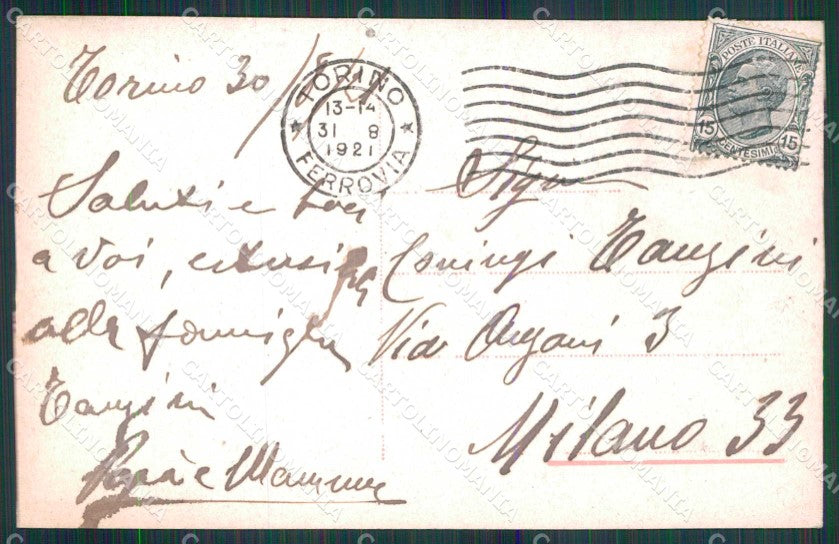 Torino 30/8/21
TORINO
13-14
31 8
1921
FERROVIA
POSTE ITALIANE
15 CENTESIMI 15
Saluti e baci
a Voi, estensi
alla famiglia
Tanzini
Papà e Mamma
Sign
Coniugi Tanzini
Via Anzani 3
Milano 33